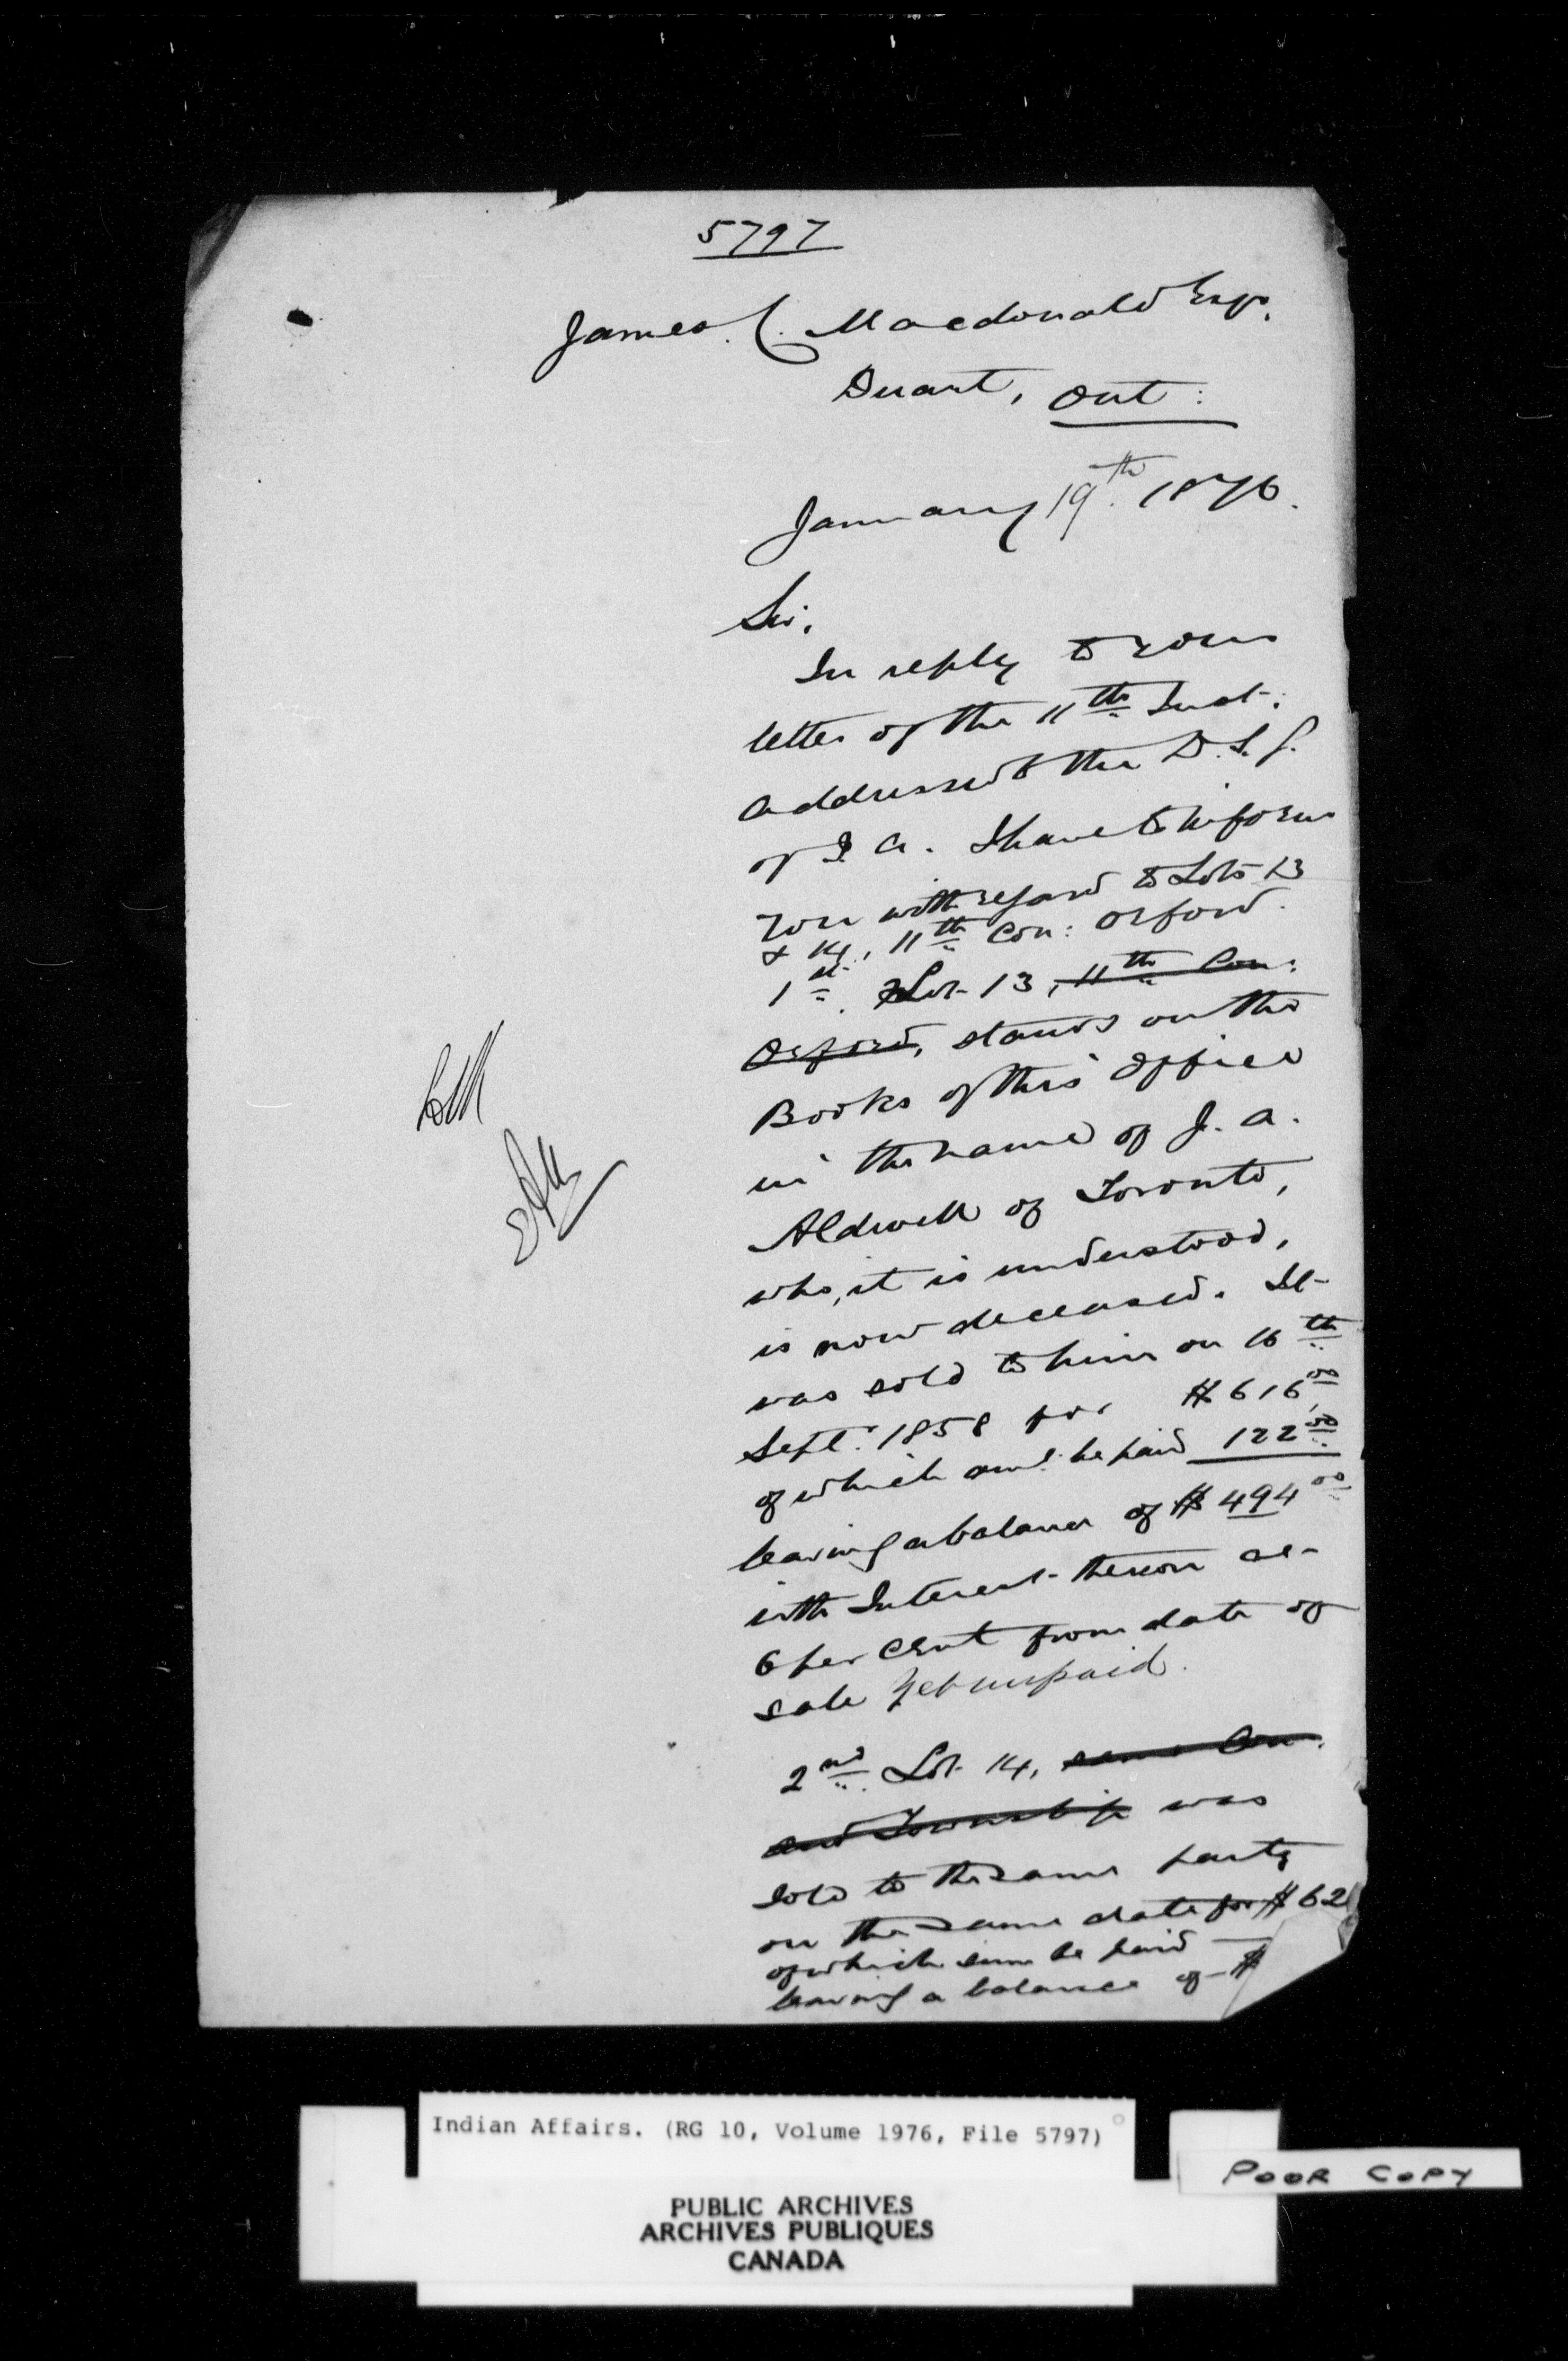 5797
James C. Macdonald Esqr.
Duart, Ont:
January 19th. 1876.
Sir,
In reply to your
letter of the 11th Inst:
addressed to the D.S.G.
of I. A. I have to inform
you with regard to Lots 13
& 14, 11th Con: Orford.
1st. Lot 13, 11th Con:
Orford, stands on the
Books of this Office
in the name of J. A.
Aldwell of Toronto,
who, it is understood,
is now deceased. It
was sold to him on 16th
Sept: 1858 for $616.00
of which amt. he paid 122.00
leaving a balance of $494.00
with Interest thereon at
6 per cent from date of
sale yet unpaid.
2nd Lot 14, same Con.
and Township was
sold to the same party
on the same date for $62
of which sum he paid
leaving a balance of $
Indian Affairs. (RG 10, Volume 1976, File 5797)
POOR COPY
PUBLIC ARCHIVES
ARCHIVES PUBLIQUES
CANADA